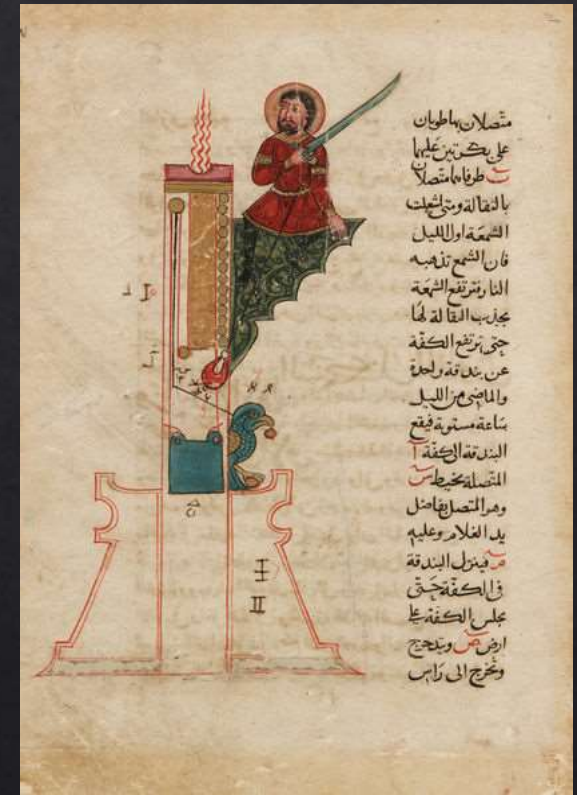 متصلان بها طويان
على بكرتين عليهما
سـ طرفاهما متصلان
بالثقالة ومتى اشعلت
الشمعة اول الليل
فان الشمع تذهبه
النار فترتفع الشمعة
بجذب الثقالة لها
حتى ترتفع الكفة
عن بندقة واحدة
والماضى من الليل
ساعة مستوية فيقع
البندقة الى كفة آ
المتصلة بخيط سـ
وهو المتصل بفاصل
يد الغلام وعليه
فينزل البندقة
فى الكفة حتى
يجلس الكفة على
ارض ص ويتدحرج
وتخرج الى راس